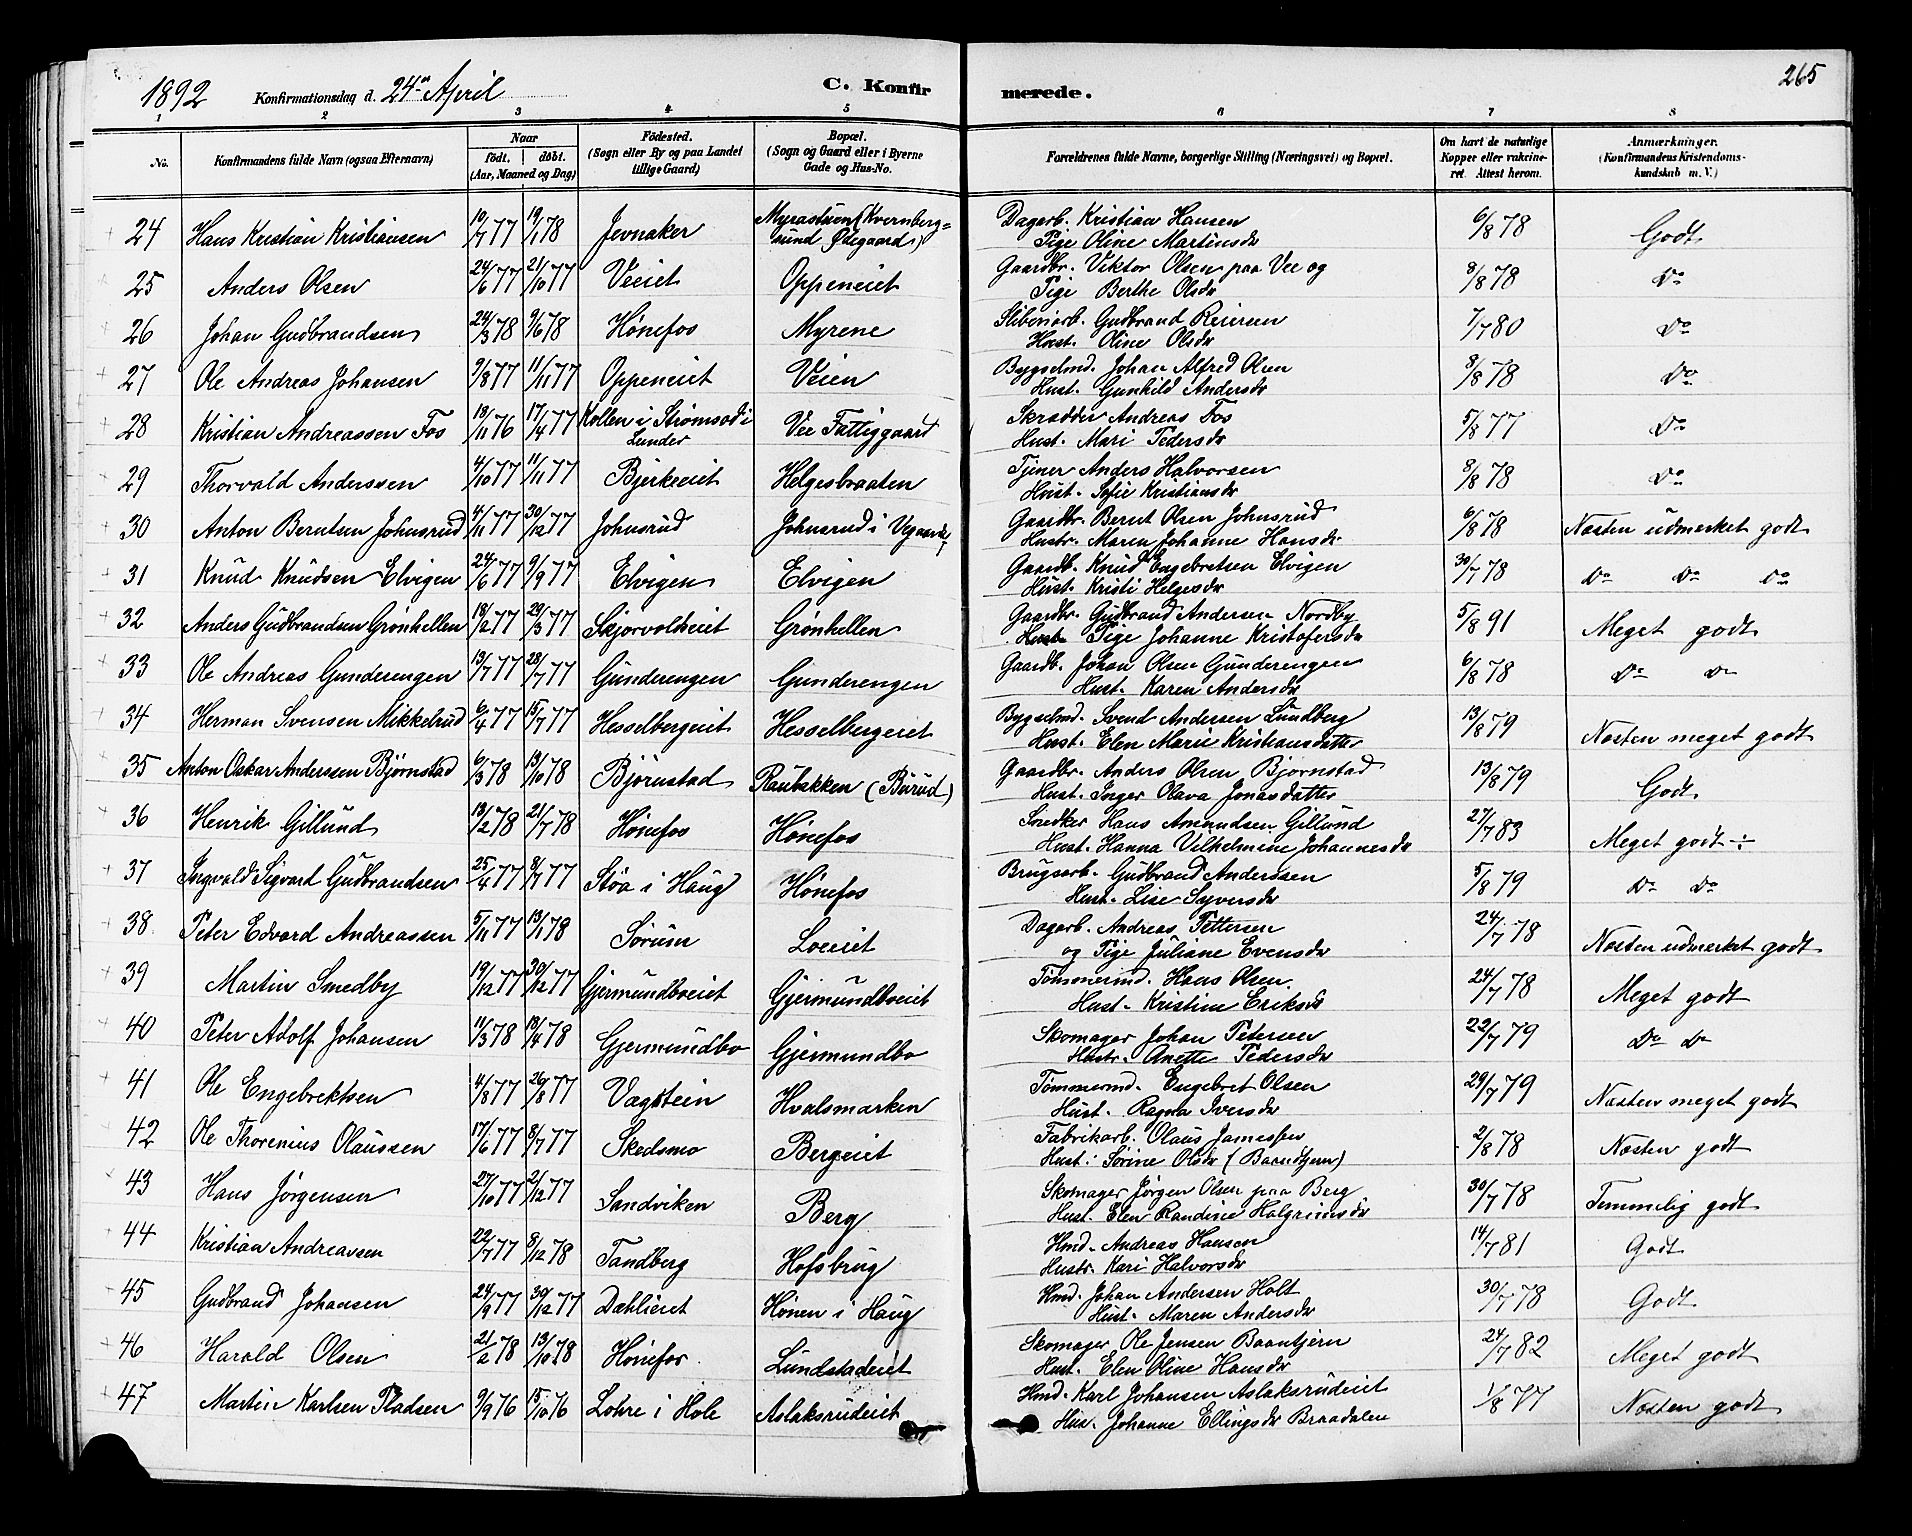 1892 Konfirmationsdag d. 24de April C. Konfirmerede. 265
1 2 3 4 5 6 7 8
No. Konfirmandens fulde Navn (ogsaa Efternavn) Naar født. døbt. (Aar, Maaned og Dag) Fødested. (Sogn eller By og paa Landet tillige Gaard) Bopæl. (Sogn og Gaard eller i Byerne Gade og Hus-No. Forældrenes fulde Navne, borgerlige Stilling (Næringsvei) og Bopæl. Om havt de naturlige Kopper eller vaccineret. Attest herom. Anmærkninger. (Konfirmandens Kristendomskundskab m. V.)
24 Hans Kristian Kristiansen 10/7 77 19/1 78 Jevnaker Myrastuen (Kvernberg=
sund Ødegaard) Dagarb. Kristian Hansen
Pige Oline Martinsdr 6/8 78 Godt
25 Anders Olsen 24/6 77 21/10 77 Veeiet Oppeneiet Gaardbr. Viktor Olsen paa Vee og
Pige Berthe Olsdr 8/8 78 Do
26 Johan Gudbrandsen 24/3 78 9/6 78 Hønefos Myrene Sliberiarb. Gudbrand Reiersen
Hust. Oline Olsdr 7/7 80 Do
27 Ole Andreas Johansen 9/8 77 11/11 77 Oppeneiet Veien Bygselmd. Johan Alfred Olsen
Hust. Gunhild Andersdr 8/8 78 Do
28 Kristian Andreassen Fos 18/11 76 17/4 77 Kollen i Strømsod i
Lunder Vee Fattiggaard Skrædder Andreas Fos
Hust. Mari Pedersdr 5/8 77 Do
29 Thorvald Anderssen 4/10 77 11/11 77 Bjerkeeiet Helgesbraaten Tjener Anders Halvorsen
Hust. Sofie Kristiansdr 8/8 78 Do
30 Anton Berntsen Johnsrud 4/11 77 30/12 77 Johnsrud Johnsrud i Vegaards Gaardbr. Bernt Olsen Johnsrud
Hustr. Maren Johanne Hansdr 6/8 78 Næsten udmerket godt
31 Knud Knudsen Elvigen 24/6 77 9/9 77 Elvigen Elvigen Gaardb. Knud Engebretsen Elvigen
Hust. Kristi Helgesdr 30/7 78 Do Do Do
32 Anders Gudbrandsen Grønhellen 18/2 77 29/3 77 Skjorvoldeiet Grønhellen Gaardbr. Gudbrand Andersen Nordby
Hust Pige Johanne Kristofersdr 5/8 91 Meget godt
33 Ole Andreas Gunderengen 13/7 77 28/7 77 Gunderengen Gunderengen Gaardb. Johan Olsen Gunderengen
Hust. Karen Andersdr 6/8 78 Do Do
34 Herman Svensen Mikkelrud 6/4 77 15/7 77 Hesselbergeiet Hesselbergeiet Bygselmd. Svend Andersen Lundberg
Hust. Elen Marie Kristiansdatter 13/8 79 Næsten meget godt
35 Anton Oskar Anderssen Bjørnstad 6/3 78 13/10 78 Bjørnstad Raubakken (Burud) Gaardbr. Anders Olsen Bjørnstad
Hust. Inger Olava Jonasdatter 13/8 79 Godt
36 Henrik Gillund 13/2 78 21/7 78 Hønefos Hønefos Snedker Hans Amundsen Gillund
Hust. Hanna Vilhelmine Johannesdr 27/7 83 Meget godt ÷
37 Ingvald Sigvard Gudbrandsen 25/4 77 8/7 77 Støa i Haug Hønefos Brugsarb. Gudbrand Anderssen
Hust. Lise Syversdr 5/8 79 Do Do
38 Peter Edvard Andreassen 5/11 77 13/1 78 Sørum Loeiet Dagarb. Andreas Pettersen
og Pige Juliane Evensdr 24/7 78 Næsten udmerket godt
39 Martin Smedby 19/12 77 30/12 77 Gjermundboeiet Gjermundboeiet Tømmermd. Hans Olsen
Hust. Kristine Eriksdr 24/7 78 Meget godt
40 Peter Adolf Johansen 11/3 78 13/4 78 Gjermundbo Gjermundbo Skomager Johan Petersen
Hustr. Anette Pedersdr 22/7 79 Do Do
41 Ole Engebrektsen 4/8 77 26/8 77 Vagstein Hvalsmarken Tømmermd. Engebret Olsen
Hust. Ragna Iversdr 29/7 79 Næsten meget godt
42 Ole Thorenius Olaussen 17/6 77 8/7 77 Skedsmo Bergeiet Fabrikarb. Olaus Jamessen
Hust: Sørine Olsdr (Baantjern) 2/8 78 Næsten godt
43 Hans Jørgensen 27/10 77 2/12 77 Sandviken Berg Skomager Jørgen Olsen paa Berg
Hust. Elen Randine Halgrimsdr 30/7 78 Temmelig godt
44 Kristian Andreassen 22/7 77 8/12 78 Tandberg Hofsbrug Hmd. Andreas Hansen
Hustr. Kari Halvorsdr 14/7 81 Godt
45 Gudbrand Johansen 24/9 77 30/12 77 Dæhlieiet Hønen i Haug Hmd. Johan Andersen Holt
Hust. Maren Andersdr 30/7 78 Godt
46 Harald Olsen 21/2 78 13/10 78 Hønefos Lundstadeiet Skomager Ole Jensen Baantjern
Hust. Elen Oline Hansdr 24/7 82 Meget godt
47 Martin Karlsen Pladsen 9/9 76 15/10 76 Lohre i Hole Aslaksrudeiet Hmd. Karl Johansen Aslaksrudeiet
Hus. Johanne Ellingsdr Braadalen 1/8 77 Næsten godt